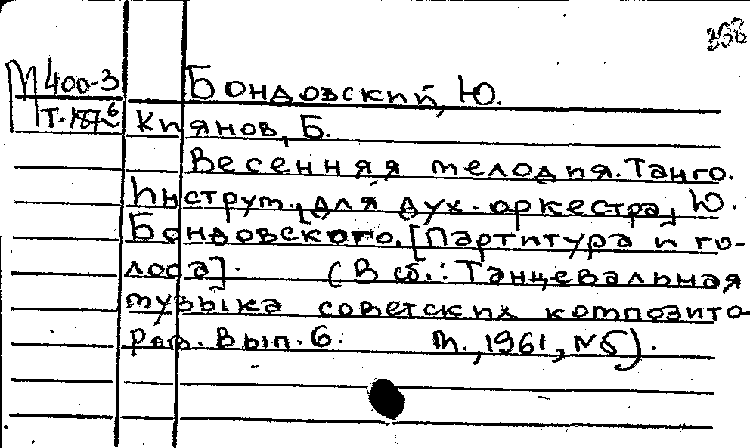 М 400-3
Т-187 6
Бондовский, Ю.
Киянов, Б.
Весенняя мелодия. Танго.
Инструм. для дух. оркестра, Ю.
Бондовского. [Партитура и го-
лоса]. (В сб.: Танцевальная
музыка советских композито-
ров. Вып. 6. М., 1961, №5).